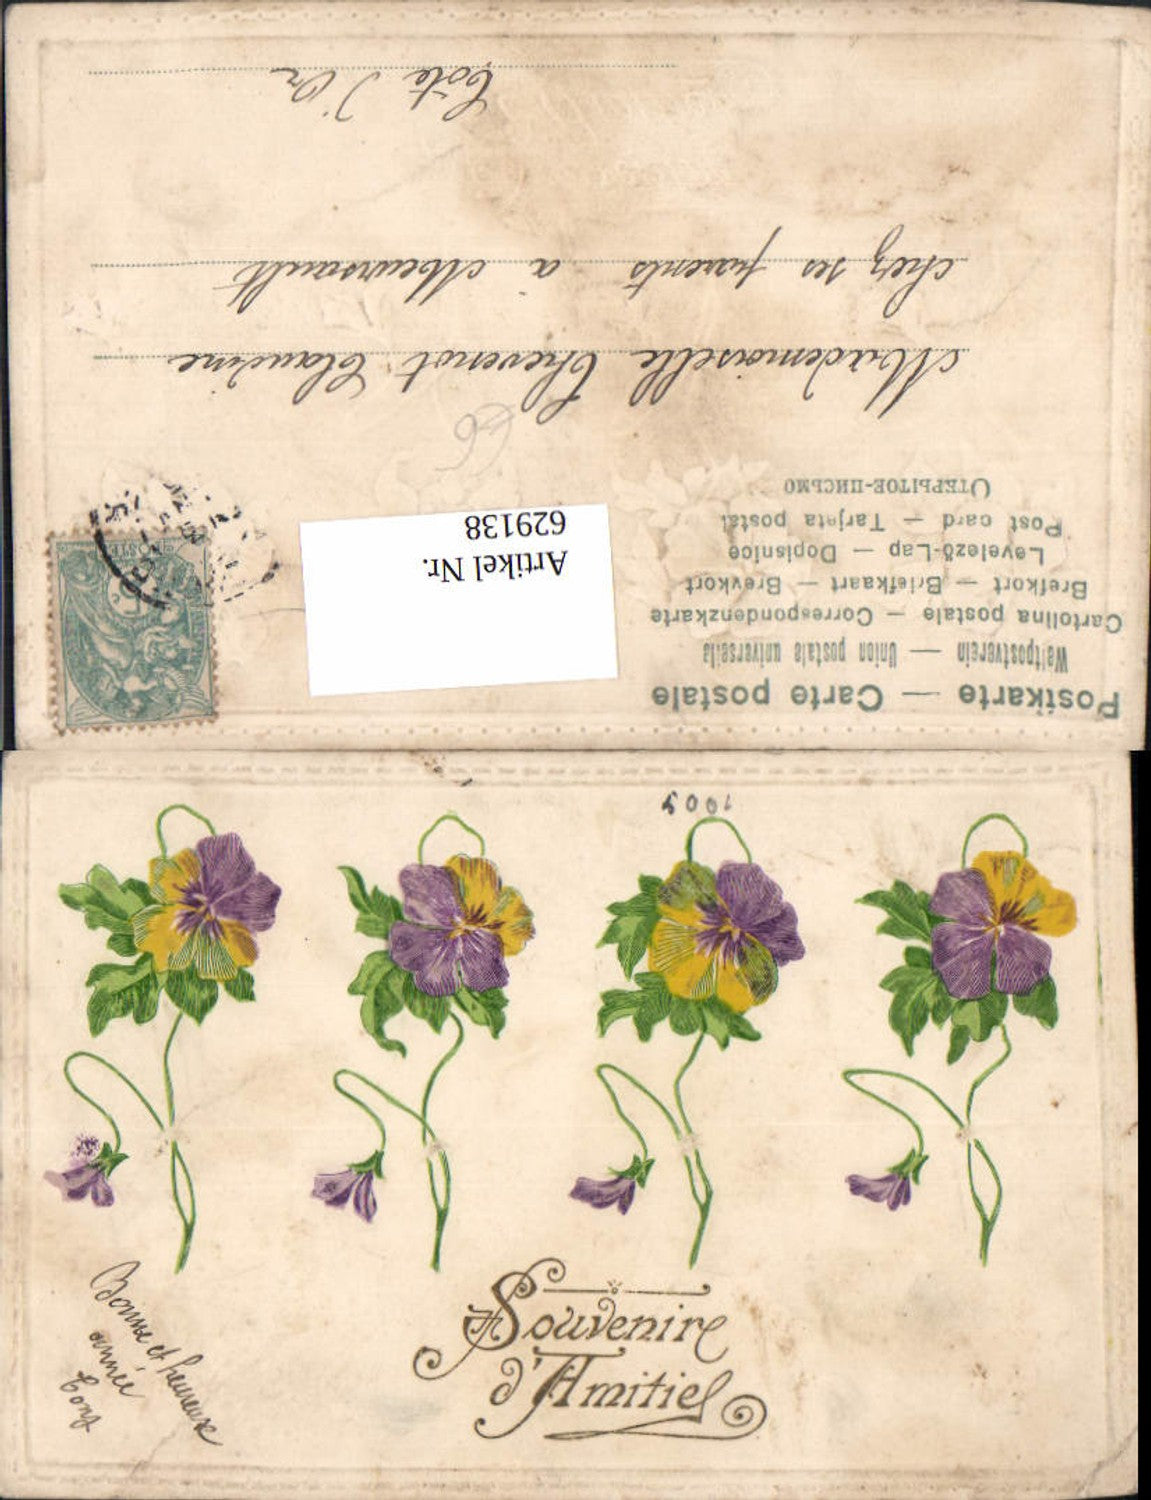 Postkarte — Carte postale
Weltpostverein — Union postale universelle
Cartolina postale — Correspondenzkarte
Brefkort — Briefkaart — Brevkort
Levelező-Lap — Dopisnice
Post card — Tarjeta postal
Открытое-письмо
Artikel Nr.
629138
66
Mademoiselle Chevenot Claudine
chez ses parents a Meursault
Côte d'Or
1905
Souvenire
d'Amitie
Bonne et heureuse
année
Tony